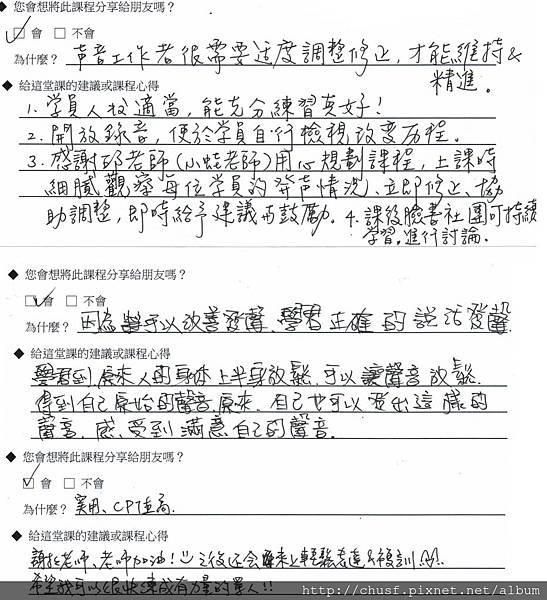 ◆ 您會想將此課程分享給朋友嗎？
☑ 會 □ 不會
為什麼？ 声音工作者很需要适度調整修正，才能維持&
精進。
◆ 給這堂課的建議或課程心得
1. 学員人数適當，能充分練習真好！
2. 開放錄音，便於学員自行檢視改变历程。
3. 感謝邱老師(小蛙老師)用心規劃課程，上課時
細膩觀察每位学員的発声情況、立即修正、協
助調整，即時給予建議与鼓勵。4. 課後臉書社團可持續
学習。進行討論.
◆ 您會想將此課程分享給朋友嗎？
☑ 會 □ 不會
為什麼？ 因為 可以改善發聲，學習正確的說話發聲.
◆ 給這堂課的建議或課程心得
學習到原來人的身体上半身放鬆，可以讓聲音放鬆.
得到自己原始的聲音，原來，自己也可以發出這樣的
聲音，感受到滿意自己的聲音.
◆ 您會想將此課程分享給朋友嗎？
☑ 會 □ 不會
為什麼？ 實用、CP值高.
◆ 給這堂課的建議或課程心得
謝謝老師、老師加油！之後还会來上輕鬆表達&複訓
希望我可以很快速成有力量的單人！！
http://chusf.pixnet.net/album